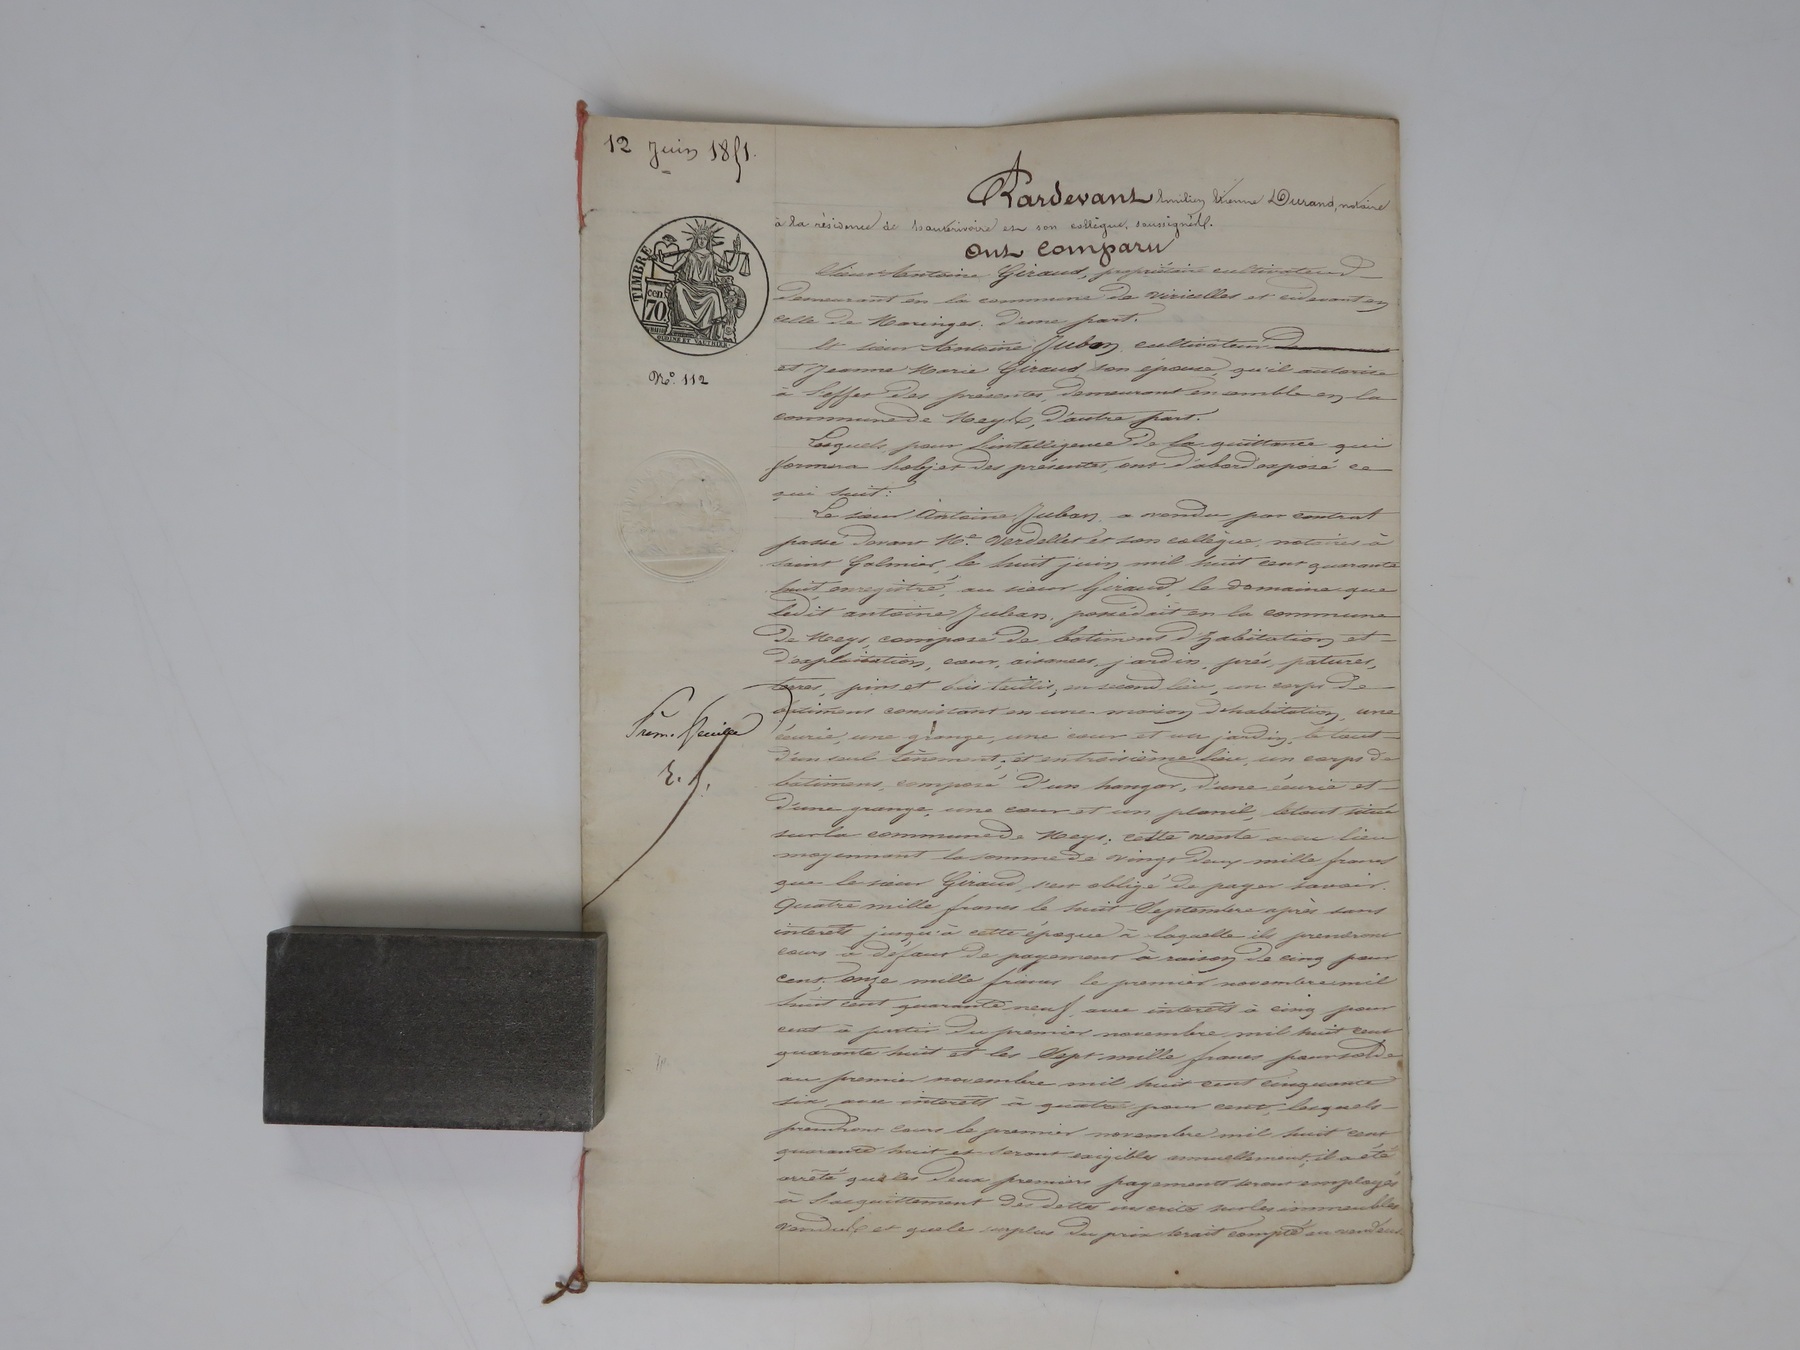 12 Juin 1851.
Pardevant Emilien Etienne Durand, notaire
à la résidence de et son collègue, soussignés.
Ont Comparu
Sieur Antoine Giraud, propriétaire cultivateur
demeurant en la commune de Viricelles et cidevant en
celle de Maringes. d'une part.
TIMBRE
cen
70
OUDINE ET VAUTHIER
Et sieur Antoine Juban cultivateur
et Jeanne Marie Giraud, son épouse, qu'il autorise
N.° 112
à l'effet des présentes, demeurant ensemble en la
commune de Meys, d'autre part.
Lesquels, pour l'intelligence de la quittance qui
formera l'objet des présentes, ont d'abord exposé ce
qui suit:
Le sieur Antoine Juban a vendu par contrat
passé devant M.e Verdellet et son collègue, notaires à
saint Galmier, le huit juin mil huit cent quarante
huit enregistré, au sieur Giraud, le domaine que
ledit antoine Juban, possédait en la commune
de Meys, composé de batimens d'habitation et
d'exploitation, cour, aisances, jardin, prés, patures,
terres, pins et bois taillis, en second lieu, un corps de
batiment consistant en une maison d'habitation, une
Prem. feuille
écurie, une grange, une cour et un jardin, le tout
d'un seul tènement; et en troisième lieu, un corps de
batimens, composé d'un hangar, d'une écurie et
d'une grange, une cour et un planil, le tout situé
sur la commune de Meys; cette vente a eu lieu
moyennant la somme de vingt deux mille francs
que le sieur Giraud, s'est obligé de payer savoir.
Quatre mille francs le huit Septembre après sans
interets jusqu'à cette époque à laquelle ils prendront
cours à défaut de payement à raison de cinq pour
cent. Onze mille francs le premier novembre mil
huit cent quarante neuf, avec interets à cinq pour
cent à partir du premier novembre mil huit cent
quarante huit et les Sept mille francs pour solde
au premier novembre mil huit cent cinquante
six, avec interets à quatre pour cent, lesquels
prendront cours le premier novembre mil huit cent
quarante huit et seront exigibles annuellement; il a été
arrêté que les deux premiers payements seront employés
à l'acquittement des dettes inscrites sur les immeubles
vendus et que le surplus du prix serait compté au vendeur